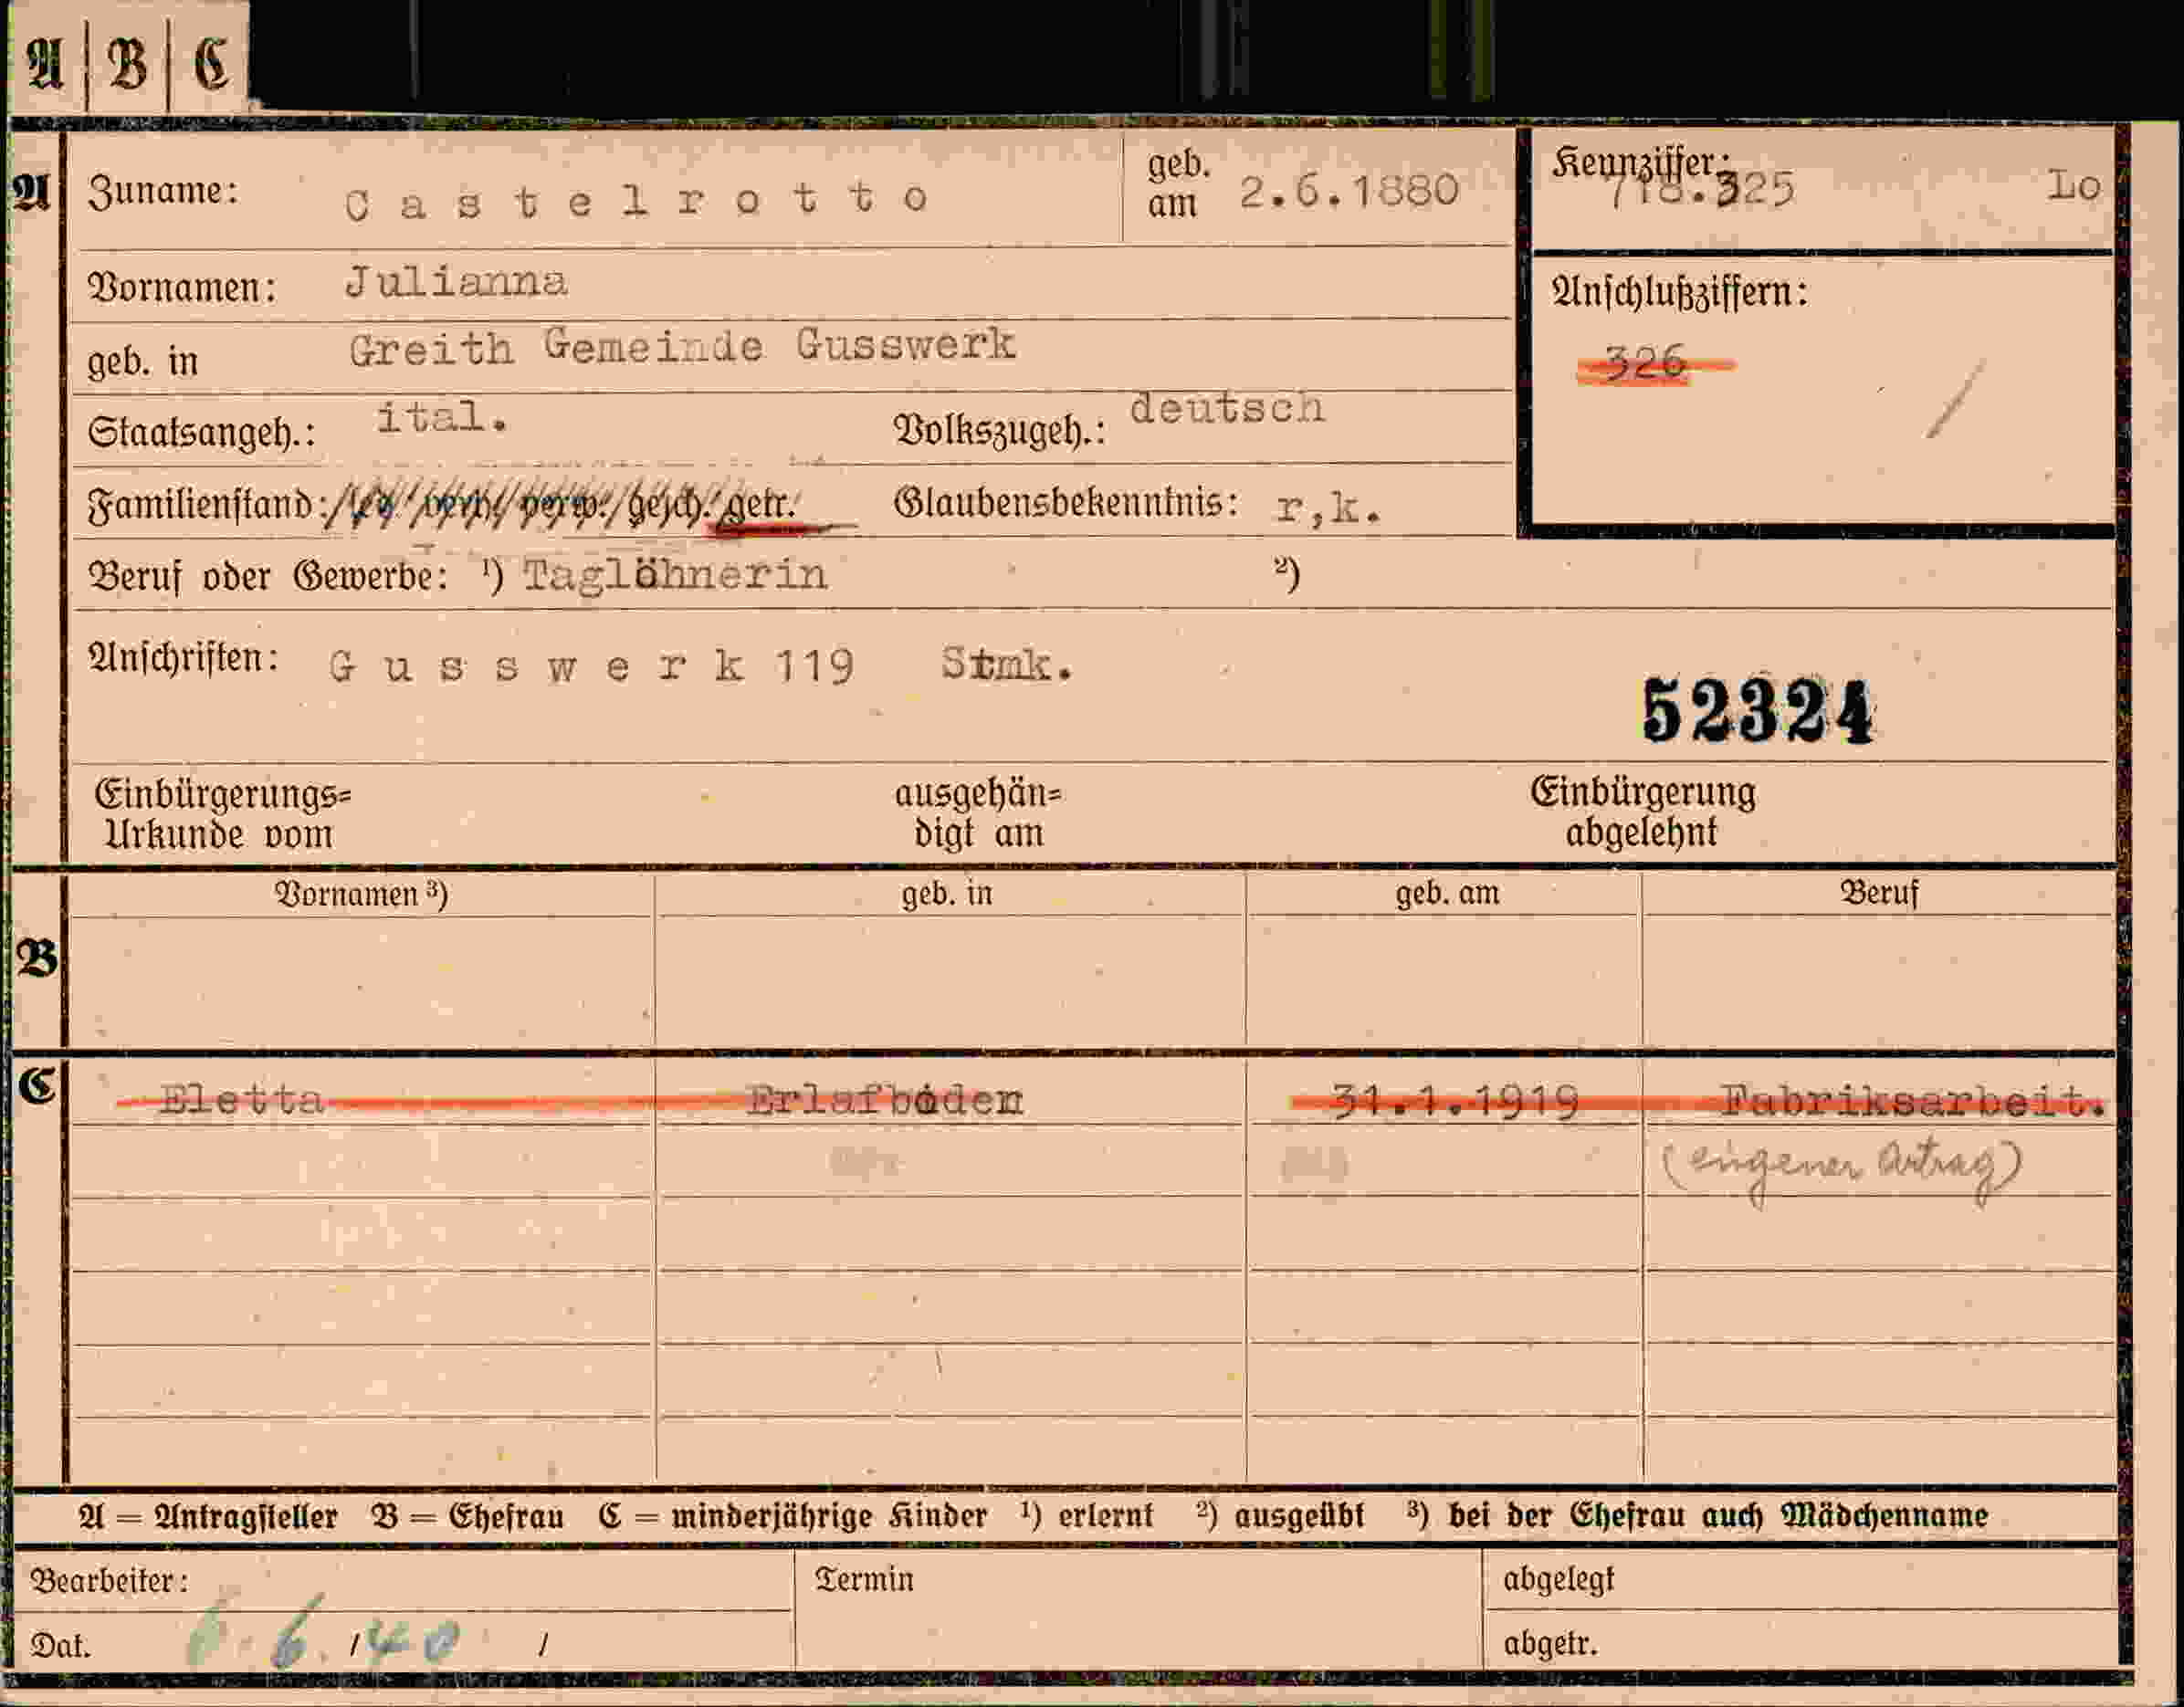 A | B | C
A Zuname: Castelrotto geb. am 2.6.1880 Kennziffer: 718.325 Lo
Vornamen: Julianna Anschlußziffern:
geb. in Greith Gemeinde Gusswerk 326
Staatsangeh.: ital. Volkszugeh.: deutsch
Familienstand: led./verh./verw./gesch./getr. Glaubensbekenntnis: r,k.
Beruf oder Gewerbe: ¹) Taglöhnerin ²)
Anschriften: Gusswerk 119 Stmk.
52324
Einbürgerungs= ausgehän= Einbürgerung
Urkunde vom digt am abgelehnt
Vornamen ³) geb. in geb. am Beruf
B
C Eletta Erlafboden 31.1.1919 Fabriksarbeit.
(eigener Antrag)
A = Antragsteller B = Ehefrau C = minderjährige Kinder ¹) erlernt ²) ausgeübt ³) bei der Ehefrau auch Mädchenname
Bearbeiter: Termin abgelegt
Dat. 6. 6. / 40 / abgetr.